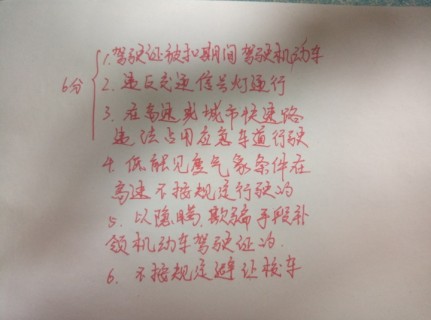 6分
1.驾驶证被扣期间驾驶机动车
2.违反交通信号灯通行
3.在高速或城市快速路
违法占用应急车道行驶
4.低能见度气象条件在
高速不按规定行驶的
5.以隐瞒、欺骗手段补
领机动车驾驶证的.
6.不按规定避让校车